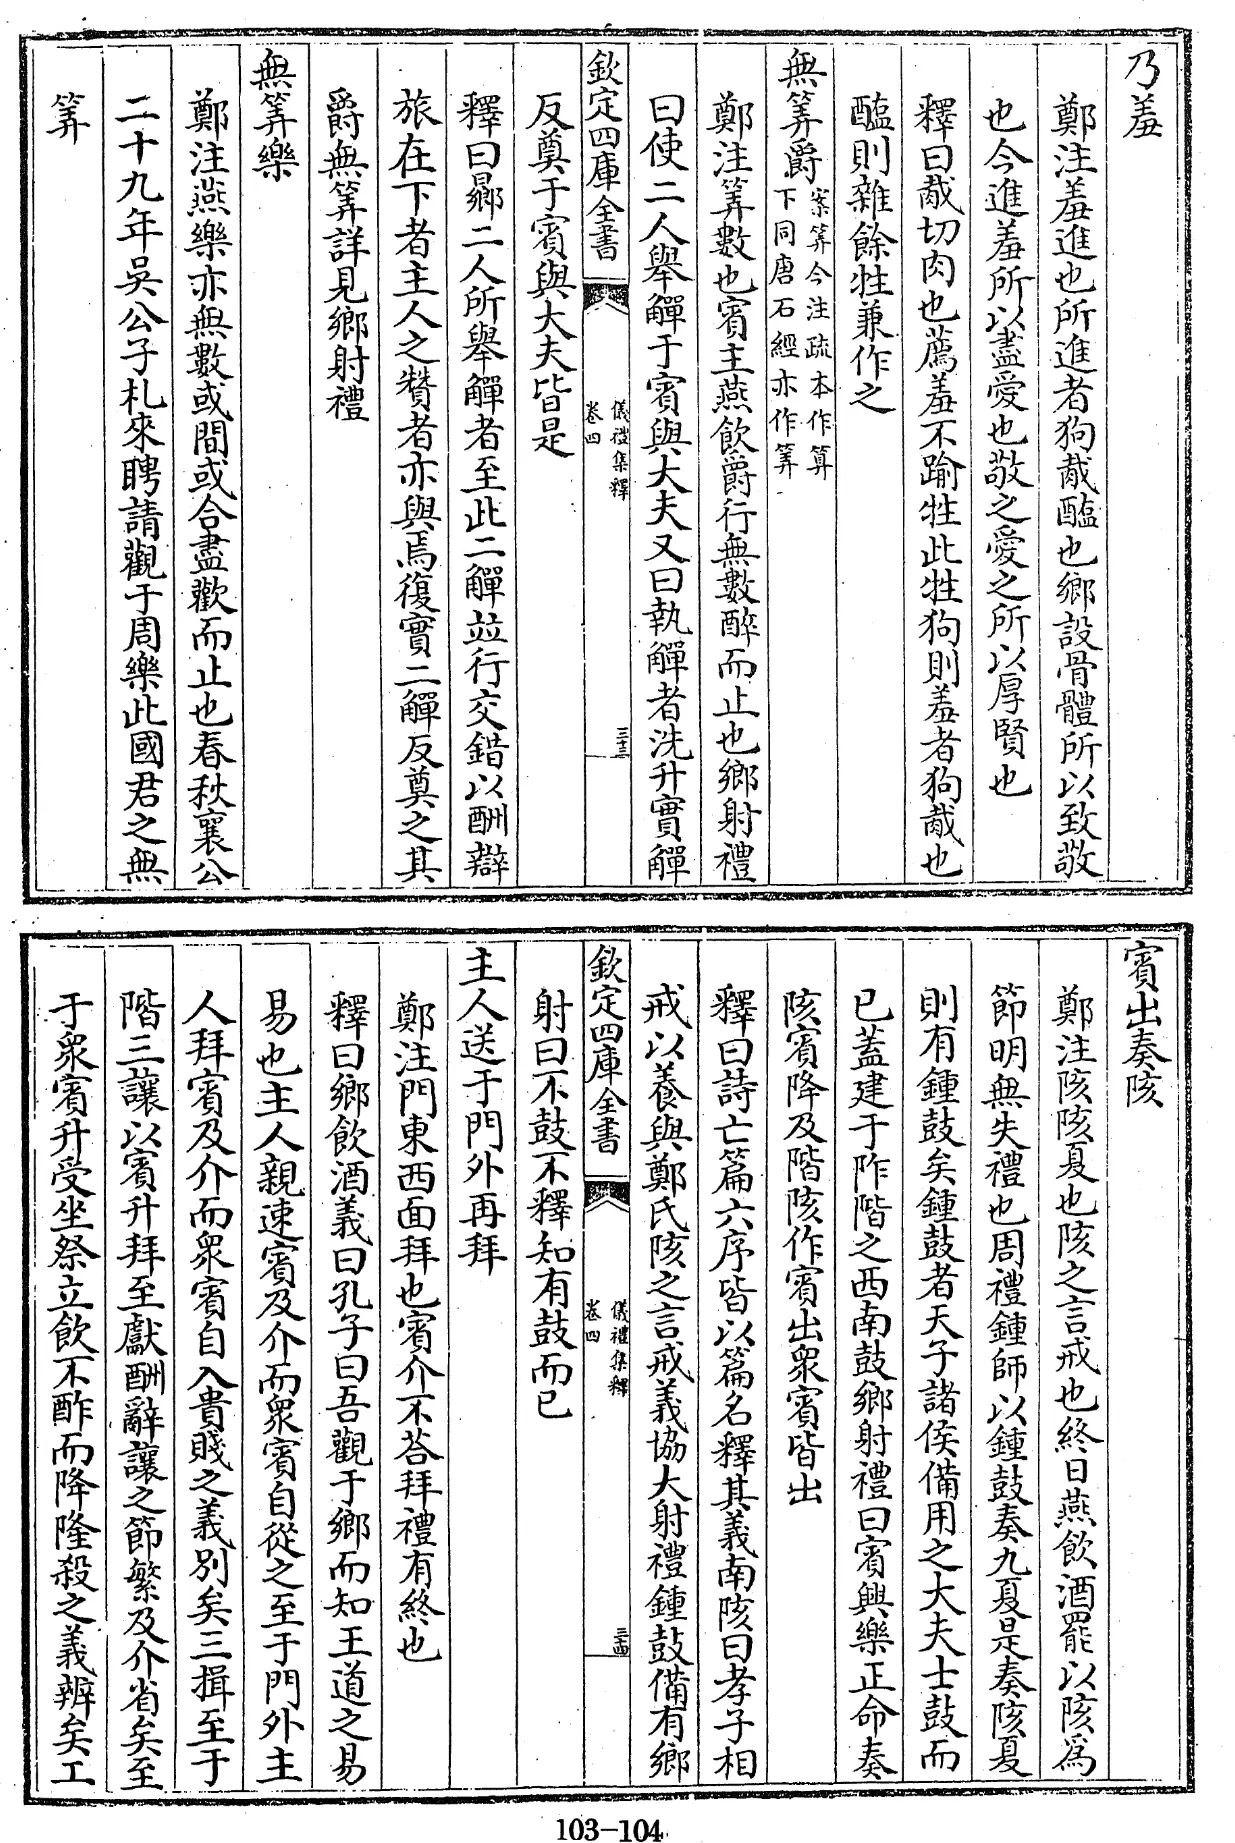 乃羞
鄭注羞進也所進者狗胾醢也鄉設骨體所以致敬
也今進羞所以盡愛也敬之愛之所以厚賢也
釋曰胾切肉也薦羞不踰牲此牲狗則羞者狗胾也
醢則雜餘牲兼作之
無筭爵案筭今注疏本作算下同唐石經亦作筭
鄭注筭數也賓主燕飲爵行無數醉而止也鄉射禮
曰使二人舉觶于賓與大夫又曰執觶者洗升實觶
欽定四庫全書
儀禮集釋
卷四
三十三
反奠于賓與大夫皆是
釋曰曏二人所舉觶者至此二觶並行交錯以酬辯
旅在下者主人之贊者亦與焉復實二觶反奠之其
爵無筭詳見鄉射禮
無筭樂
鄭注燕樂亦無數或間或合盡歡而止也春秋襄公
二十九年吳公子札來聘請觀于周樂此國君之無
筭
賓出奏陔
鄭注陔陔夏也陔之言戒也終日燕飲酒罷以陔為
節明無失禮也周禮鍾師以鍾鼓奏九夏是奏陔夏
則有鍾鼓矣鍾鼓者天子諸侯備用之大夫士鼓而
已蓋建于阼階之西南鼓鄉射禮曰賓興樂正命奏
陔賓降及階陔作賓出衆賓皆出
釋曰詩亡篇六序皆以篇名釋其義南陔曰孝子相
戒以養與鄭氏陔之言戒義協大射禮鍾鼓備有鄉
欽定四庫全書
儀禮集釋
卷四
三十四
射曰不鼓不釋知有鼓而已
主人送于門外再拜
鄭注門東西面拜也賓介不荅拜禮有終也
釋曰鄉飲酒義曰孔子曰吾觀于鄉而知王道之易
易也主人親速賓及介而衆賓自從之至于門外主
人拜賓及介而衆賓自入貴賤之義別矣三揖至于
階三讓以賓升拜至獻酬辭讓之節繁及介省矣至
于衆賓升受坐祭立飲不酢而降隆殺之義辨矣工
103-104